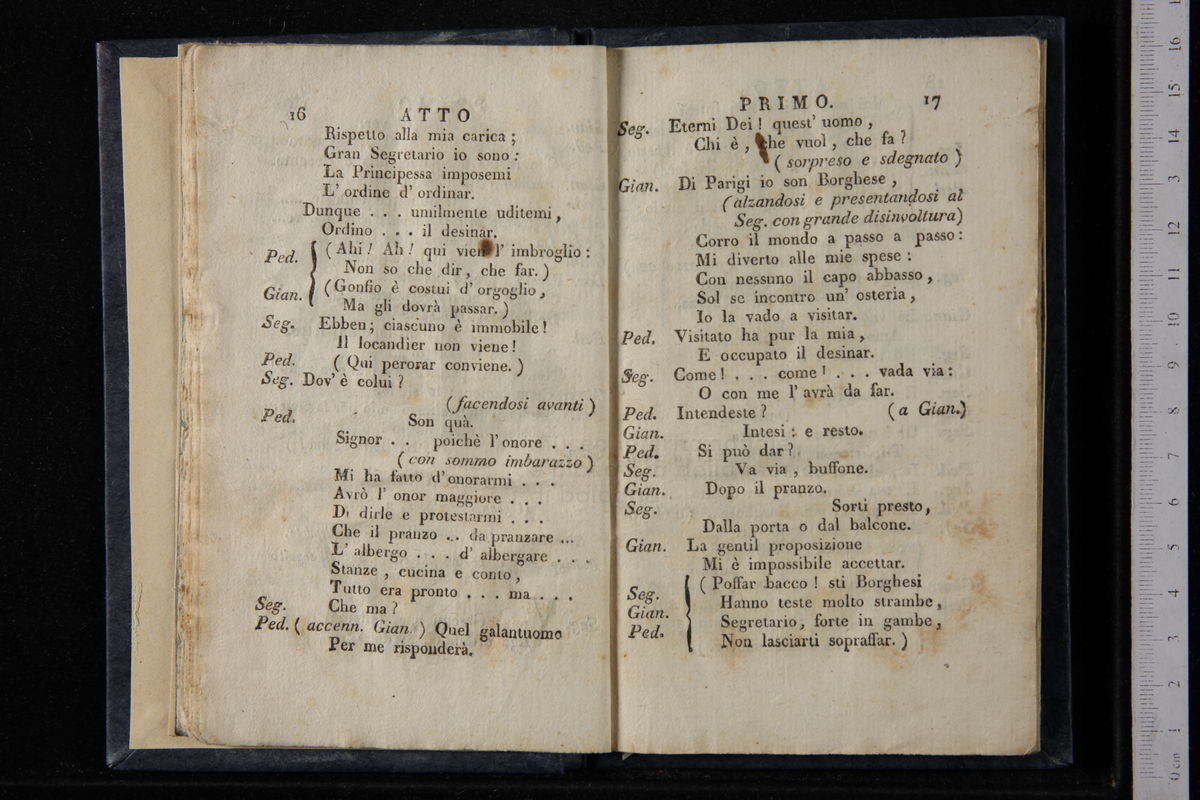 16 ATTO
Rispetto alla mia carica ;
Gran Segretario io sono :
La Principessa imposemi
L' ordine d' ordinar.
Dunque . . . umilmente uditemi ,
Ordino . . . il desinar.
Ped. ( Ahi ! Ah ! qui vien l' imbroglio :
Non so che dir , che far. )
Gian. ( Gonfio è costui d' orgoglio ,
Ma gli dovrà passar. )
Seg. Ebben ; ciascuno è immobile !
Il locandier non viene !
Ped. ( Qui perorar conviene. )
Seg. Dov' è colui ?
(facendosi avanti )
Ped. Son quà.
Signor . . poichè l' onore . . .
( con sommo imbarazzo )
Mi ha fatto d' onorarmi . . .
Avrò l' onor maggiore . . .
Di dirle e protestarmi . . .
Che il pranzo ... da pranzare ...
L' albergo . . . d' albergare . . .
Stanze , cucina e conto ,
Tutto era pronto . . . ma . . .
Seg. Che ma ?
Ped. ( accenn. Gian. ) Quel galantuomo
Per me risponderà.
PRIMO. 17
Seg. Eterni Dei ! quest' uomo ,
Chi è , che vuol , che fa ?
( sorpreso e sdegnato )
Gian. Di Parigi io son Borghese ,
(alzandosi e presentandosi al
Seg. con grande disinvoltura)
Corro il mondo a passo a passo :
Mi diverto alle mie spese :
Con nessuno il capo abbasso ,
Sol se incontro un' osteria ,
Io la vado a visitar.
Ped. Visitato ha pur la mia ,
E occupato il desinar.
Seg. Come ! . . . come ! . . . vada via :
O con me l' avrà da far.
Ped. Intendeste ? ( a Gian.)
Gian. Intesi : e resto.
Ped. Si può dar ?
Seg. Va via , buffone.
Gian. Dopo il pranzo.
Seg. Sorti presto,
Dalla porta o dal balcone.
Gian. La gentil proposizione
Mi è impossibile accettar.
( Poffar bacco ! sti Borghesi
Seg. Hanno teste molto strambe,
Gian. Segretario, forte in gambe,
Ped. Non lasciarti sopraffar. )
0 cm 1 2 3 4 5 6 7 8 9 10 11 12 13 14 15 16